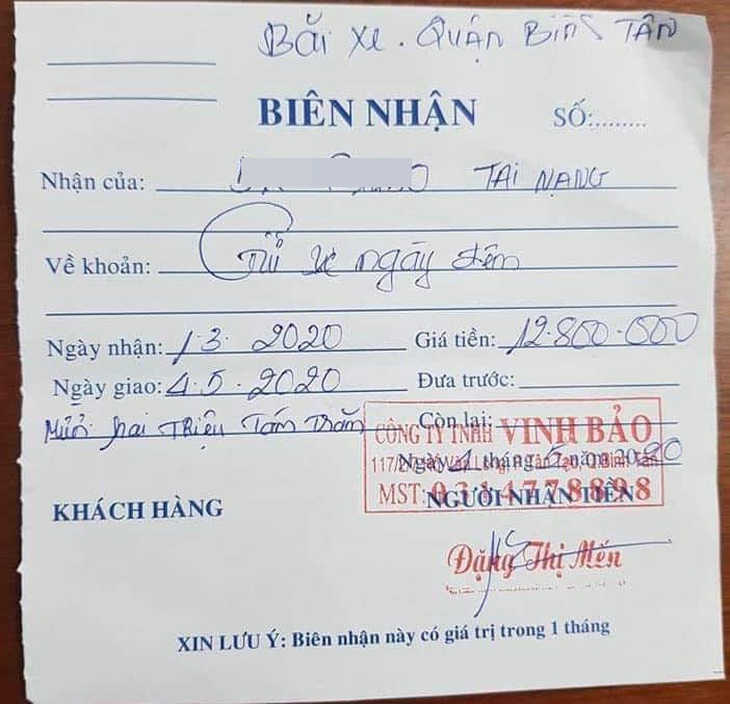 Bãi xe. Quận Bình Tân
BIÊN NHẬN SỐ:.........
Nhận của: TAI NẠNG
Về khoản: Giữ xe ngày đêm
Ngày nhận: 1.3. 2020 Giá tiền: 12.800.000
Ngày giao: 4.5.2020 Đưa trước:
Mười hai Triệu Tám Trăm Còn lại:
CÔNG TY TNHH VINH BẢO
Ngày 4 tháng 5 năm 2020
MST:
KHÁCH HÀNG NGƯỜI NHẬN TIỀN
Đặng Thị Mến
XIN LƯU Ý: Biên nhận này có giá trị trong 1 tháng